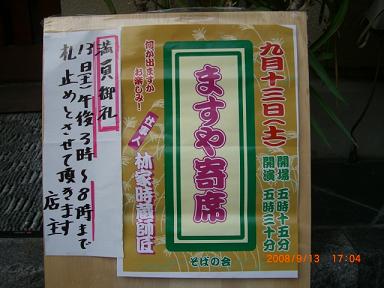 九月十三日(土)
開場 五時十五分
開演 五時三十分
ますや寄席
何が出ますか
お楽しみ!
仕事人
林家時蔵師匠
そばの会
満員御礼
13日(土)午後3時〜8時まで
札止めとさせて頂きます
店主
2008/9/13 17:04